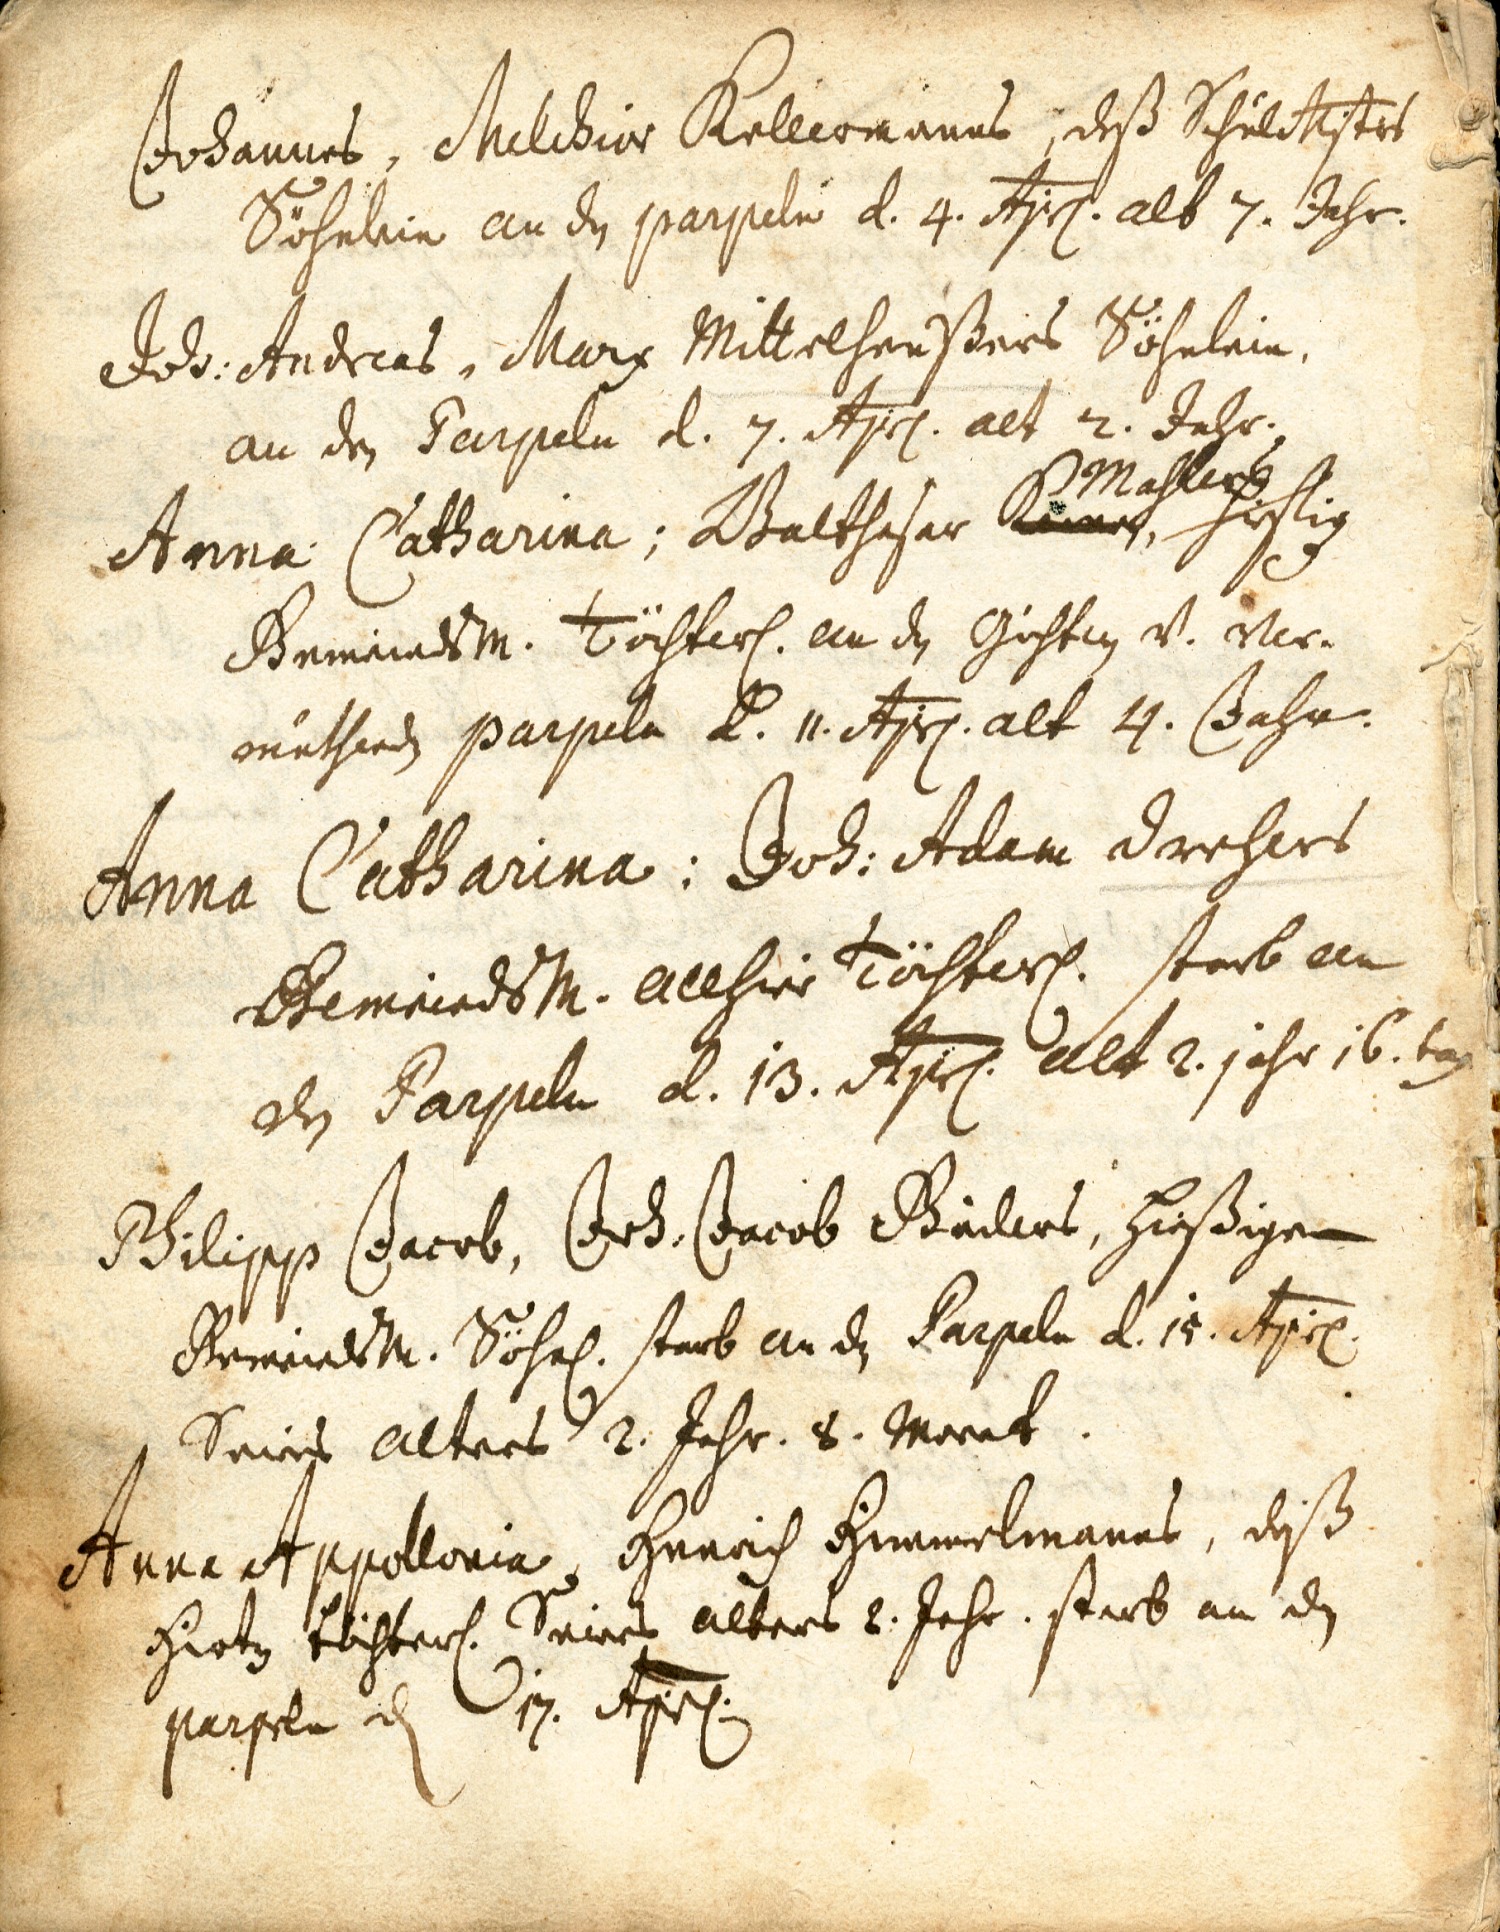 Johannes, Melchior Kellermanns, deß Schuldtistrs
Söhnlein an dn parpeln d. 4. Apr. alt 7. Jahr.
Joh: Andreas, Marx Mittelheußers Söhnlein,
an den Parpeln d. 7. Apr. alt 2. Jahr.
Mahlers
Anna Catharina; Balthasar hießig
Gemeinds M. Töchterl. an dn Gichten v. ver-
muthend parpeln d. 11. Apr. alt 4. Jahr.
Anna Catharina: Joh: Adam Drehers
Gemeinds M. allhier Töchterl. starb an
den Parpeln d. 13. Apr. alt 2. jahr 16. tag
Philipp Jacob, Joh. Jacob Baders, hießigen
Gemeinds M. Söhnl. starb an dn Parpeln d. 15. Apr.
Seines alters 2. Jahr. 8. Monat.
Anna Appollonia, Henrich Himmelmanns, deß
Hirtn töchterl. Seines alters 2. Jahr. starb an dn
parpeln d 17. Apr.